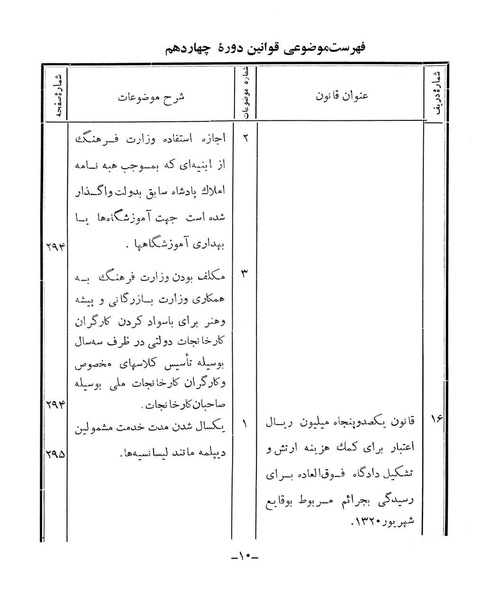 فهرست موضوعی قوانین دورهٔ چهاردهم
شمارهٔ ردیف
عنوان قانون
شماره موضوعات
شرح موضوعات
شمارهٔ صفحه
۲
اجازه استفاده وزارت فرهنگ
از ابنیه‌ای که بموجب هبه نامه
املاک پادشاه سابق بدولت واگذار
شده است جهت آموزشگاه‌ها یا
بهداری آموزشگاهها .
۲۹۴
۳
مکلف بودن وزارت فرهنگ به
همکاری وزارت بازرگانی و پیشه
وهنر برای باسواد کردن کارگران
کارخانجات دولتی در ظرف سه‌سال
بوسیله تأسیس کلاسهای مخصوص
وکارگران کارخانجات ملی بوسیله
صاحبان کارخانجات.
۲۹۴
۱۶
قانون یکصدوپنجاه میلیون ریال
اعتبار برای کمک هزینه ارتش و
تشکیل دادگاه فوق‌العاده برای
رسیدگی بجرائم مربوط بوقایع
شهریور ۱۳۲۰.
۱
یکسال شدن مدت خدمت مشمولین
دیپلمه مانند لیسانسیه‌ها.
۲۹۵
-۱۰-